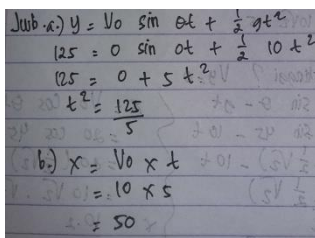 Jwb. a.) y = Vo sin θt + 1/2 gt²
125 = 0 sin 0t + 1/2 10 t²
125 = 0 + 5 t²
t² = 125/5
b.) x = Vo x t
= 10 x 5
= 50